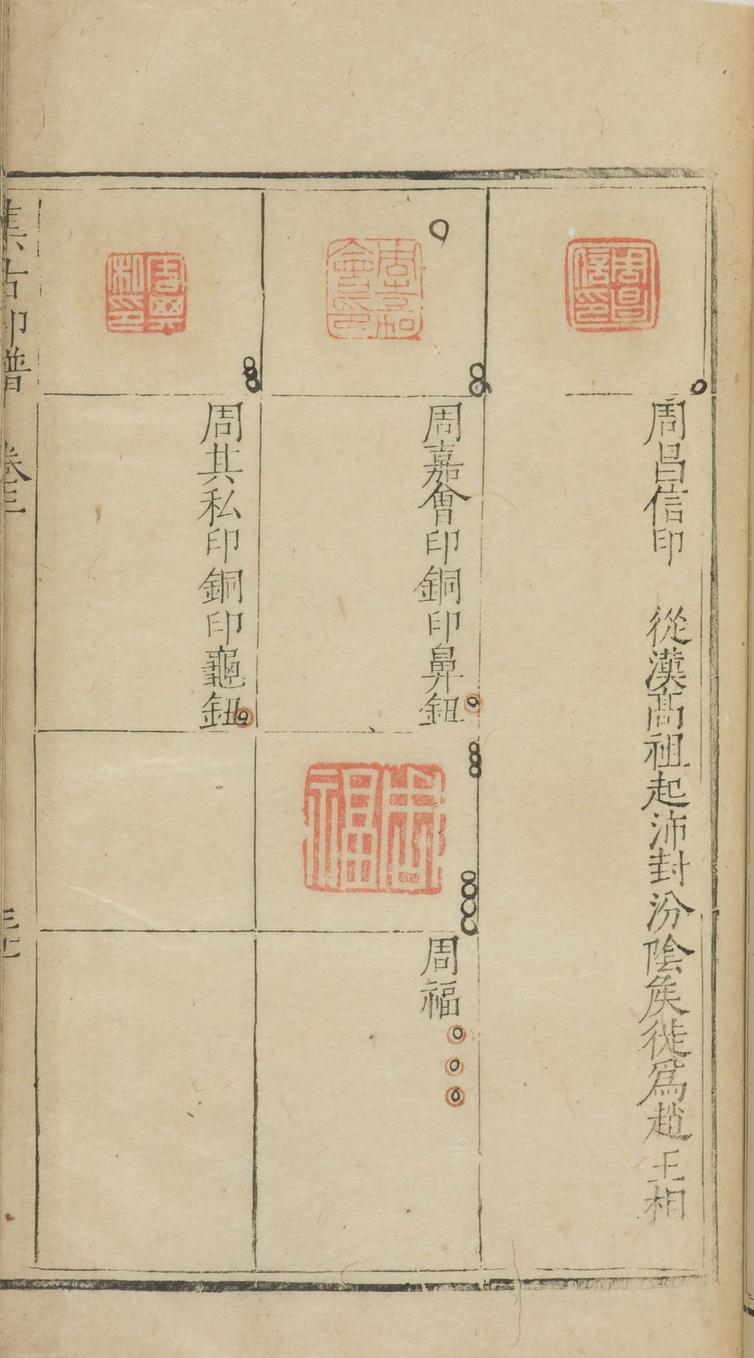 周昌信印
周昌信印　從漢高祖起沛封汾陰矦徙爲趙王相
周嘉會印
周嘉會印銅印鼻鈕
周福
周福
周其私印
周其私印銅印龜鈕
集古印譜　卷三